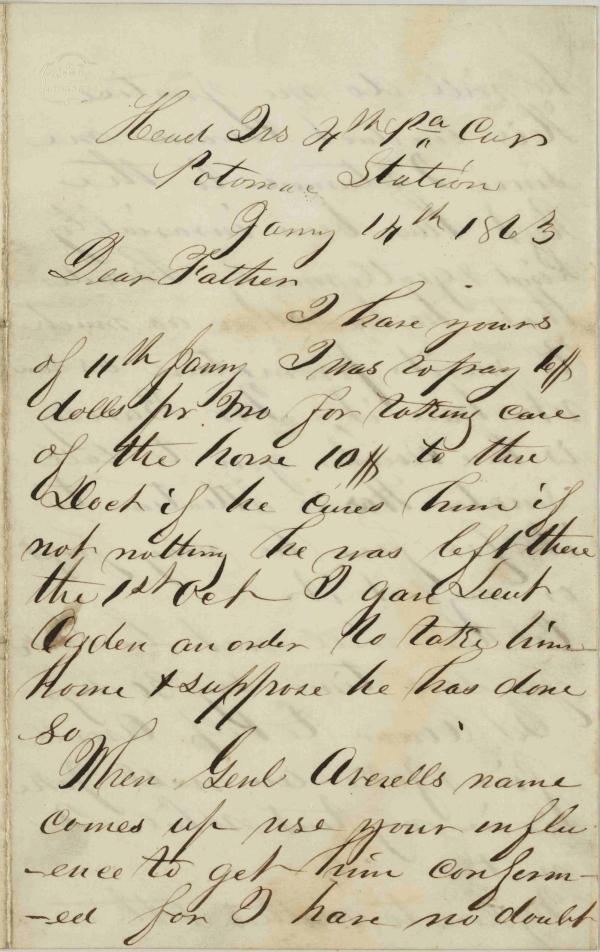 Head Qrs 4th Pa Cav
Potomac Station
Jany 14th 1863
Dear Father
I have yours
of 11th Jany I was to pay
dolls pr Mo for taking care
of the horse 10 to the
Doct if he cures him if
not nothing he was left there
the 1st Oct I gave Lieut
Ogden an order to take him
home & suppose he has done
so
When Genl Averells name
comes up use your influ
-ence to get him conferm-
-ed for I have no doubt